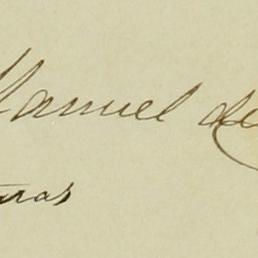 Manuel de
uras